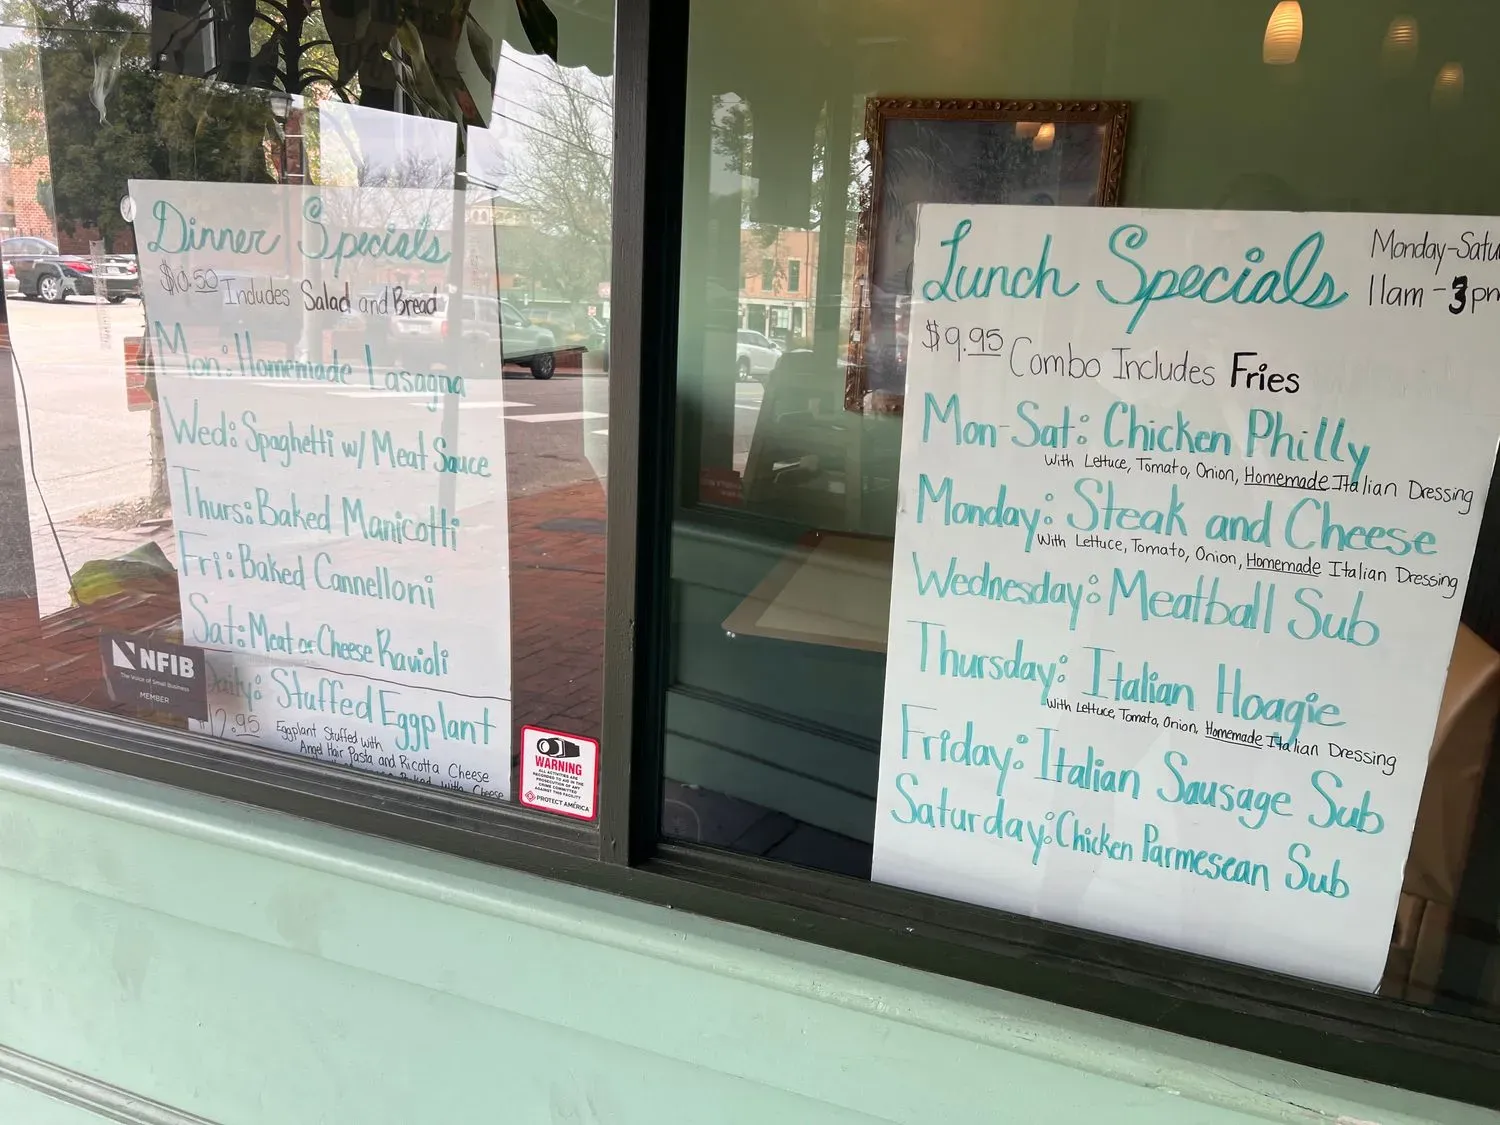 Dinner Specials
Includes Salad and Bread
Mon: Homemade Lasagna
Wed: Spaghetti w/ Meat Sauce
Thurs: Baked Manicotti
Fri: Baked Cannelloni
Sat: Meat or Cheese Ravioli
Daily: Stuffed Eggplant
$12.95 Eggplant Stuffed with
Angel Hair Pasta and Ricotta Cheese
Baked with Cheese
NFIB
The Voice of Small Business
MEMBER
WARNING
ALL ACTIVITIES ARE
RECORDED TO AID IN THE
PROSECUTION OF ANY
CRIME COMMITTED
AGAINST THIS FACILITY
PROTECT AMERICA
Lunch Specials
Monday-Satu
11am - 3pm
$9.95 Combo Includes Fries
Mon-Sat: Chicken Philly
With Lettuce, Tomato, Onion, Homemade Italian Dressing
Monday: Steak and Cheese
With Lettuce, Tomato, Onion, Homemade Italian Dressing
Wednesday: Meatball Sub
Thursday: Italian Hoagie
With Lettuce, Tomato, Onion, Homemade Italian Dressing
Friday: Italian Sausage Sub
Saturday: Chicken Parmesean Sub